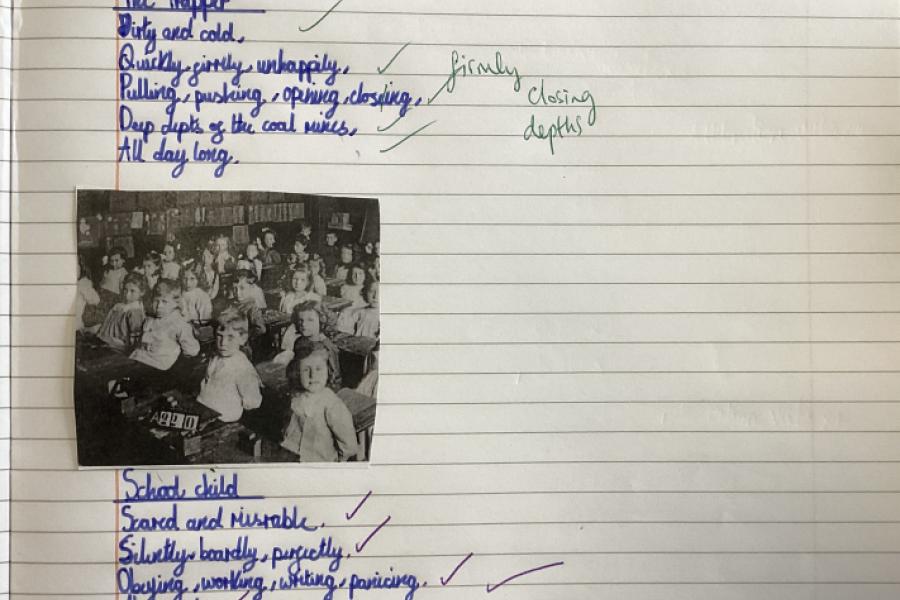 The Trapper
Dirty and cold.
Quickly, firmly, unhappily.
firmly
Pulling, pushing, opening, closding.
closing
Deep depts of the coal mines.
depths
All day long.
A220
School child
Scared and misrable.
Silently, boardly, perfectly.
Obeying, working, writing, panicing.